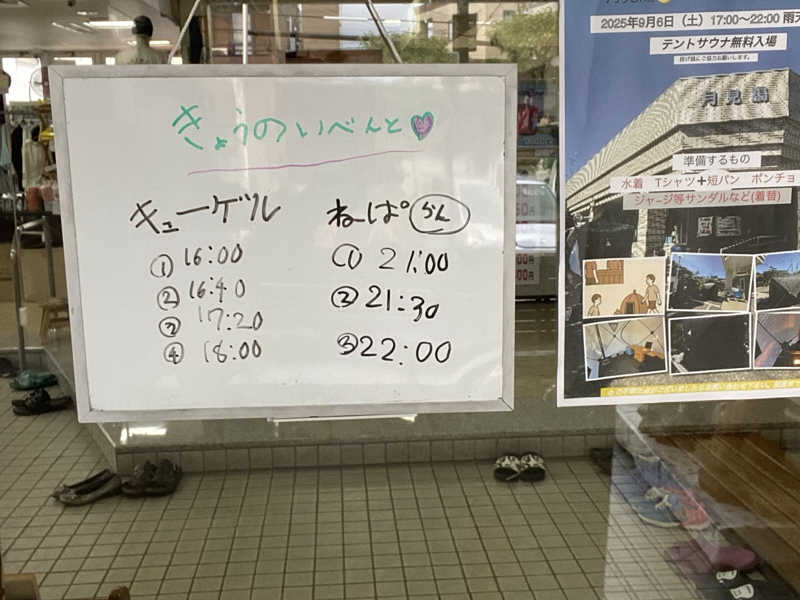 きょうのいべんと
キューゲル
① 16:00
② 16:40
③ 17:20
④ 18:00
ねーぱらん
① 21:00
② 21:30
③ 22:00
2025年9月6日(土) 17:00〜22:00 雨天
テントサウナ無料入場
月見湯
準備するもの
水着 Tシャツ+短パン ポンチョ
ジャージ等サンダルなど(着替)